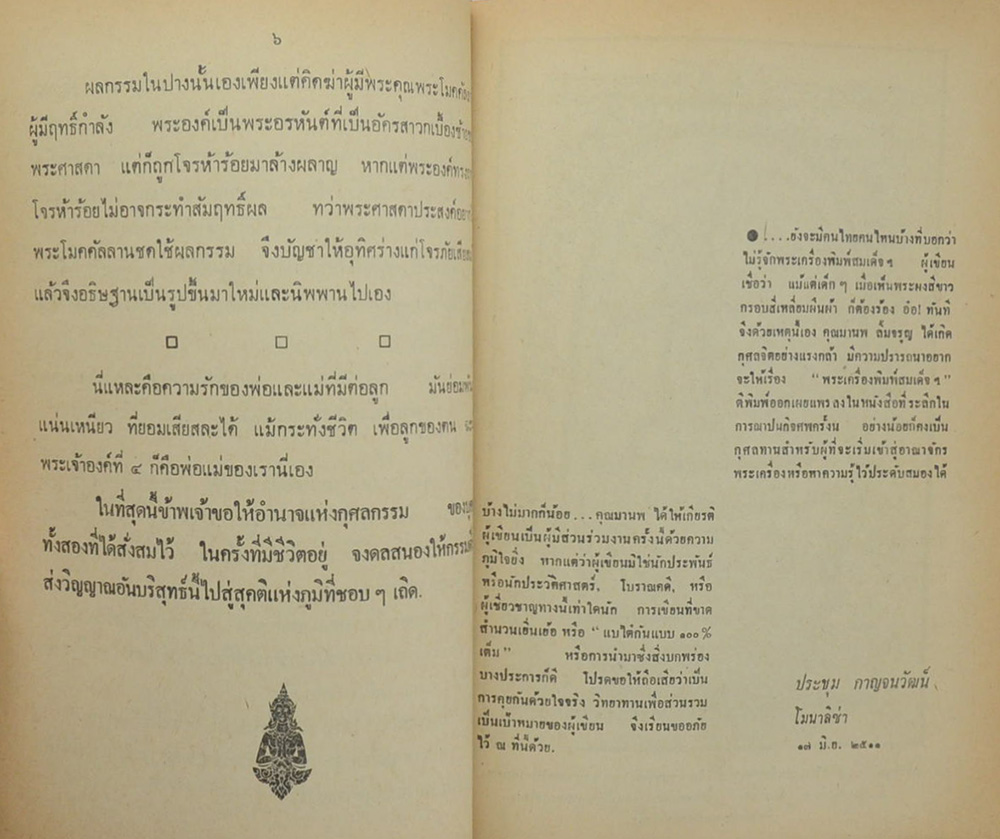 ๖
ผลกรรมในปางนั้นเองเพียงแต่คิดฆ่าผู้มีพระคุณพระโมคคัล
ผู้มีฤทธิ์กำลัง พระองค์เป็นพระอรหันต์ที่เป็นอัครสาวกเบื้องซ้าย
พระศาสดา แต่ก็ถูกโจรห้าร้อยมาล้างผลาญ หากแต่พระองค์ทรง
โจรห้าร้อยไม่อาจกระทำสัมฤทธิ์ผล ทว่าพระศาสดาประสงค์
พระโมคคัลลานชดใช้ผลกรรม จึงบัญชาให้อุทิศร่างแก่โจรภัย
แล้วจึงอธิษฐานเป็นรูปขึ้นมาใหม่และนิพพานไปเอง
□ □ □
นี่แหละคือความรักของพ่อและแม่ที่มีต่อลูก มันย่อม
แน่นเหนียว ที่ยอมเสียสละได้ แม้กระทั่งชีวิต เพื่อลูกของตน
พระเจ้าองค์ที่ ๔ ก็คือพ่อแม่ของเรานี่เอง
ในที่สุดนี้ข้าพเจ้าขอให้อำนาจแห่งกุศลกรรม ของ
ทั้งสองที่ได้สั่งสมไว้ ในครั้งที่มีชีวิตอยู่ จงดลสนองให้กรรม
ส่งวิญญาณอันบริสุทธ์นี้ไปสู่สุคติแห่งภูมิที่ชอบ ๆ เถิด.
● ....ยังจะมีคนไทยคนไหนบ้างที่บอกว่า
ไม่รู้จักพระเครื่องพิมพ์สมเด็จฯ ผู้เขียน
เชื่อว่า แม้แต่เด็ก ๆ เมื่อเห็นพระผงสีขาว
กรอบสี่เหลี่ยมผืนผ้า ก็ต้องร้อง อ๋อ! ทันที
จึงด้วยเหตุนี้เอง คุณมานพ ลิ้มจรูญ ได้เกิด
กุศลจิตอย่างแรงกล้า มีความปรารถนาอยาก
จะให้เรื่อง “พระเครื่องพิมพ์สมเด็จฯ”
ตีพิมพ์ออกเผยแพร่ ลงในหนังสือที่ระลึกใน
การฌาปนกิจศพครั้งน อย่างน้อยก็คงเป็น
กุศลทานสำหรับผู้ที่จะเริ่มเข้าสู่อาณาจักร
พระเครื่องหรือหาความรู้ไว้ประดับสมองได้
บ้างไม่มากก็น้อย... คุณมานพ ได้ให้เกียรติ
ผู้เขียนเป็นผู้มีส่วนร่วมงานครั้งนี้ด้วยความ
ภูมิใจยิ่ง หากแต่ว่าผู้เขียนมิใช่นักประพันธ์
หรือนักประวัติศาสตร์, โบราณคดี, หรือ
ผู้เชี่ยวชาญทางนี้เท่าใดนัก การเขียนที่ขาด
สำนวนเยิ่นเย้อ หรือ “แบไต๋กันแบบ ๑๐๐%
เต็ม” หรือการนำมาซึ่งสิ่งบกพร่อง
บางประการก็ดี โปรดขอให้ถือเสียว่าเป็น
การคุยกันด้วยใจจริง วิทยาทานเพื่อส่วนรวม
เป็นเป้าหมายของผู้เขียน จึงเรียนขออภัย
ไว้ ณ ที่นี้ด้วย.
ประชุม กาญจนวัฒน์
โมนาลิซ่า
๑๗ มิ.ย. ๒๕๑๑